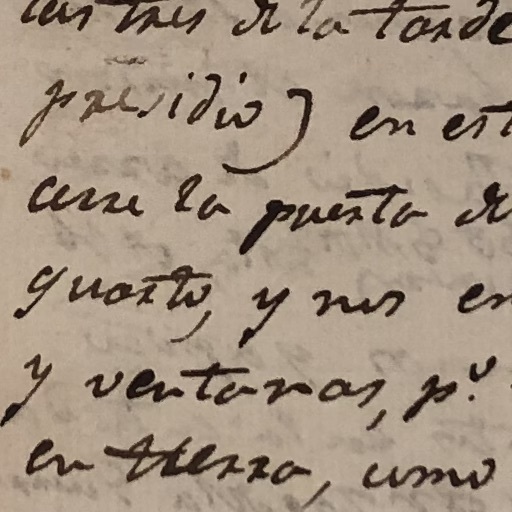 las tres de la tarde
presidio) en est
cerre la puerta de
quarto, y nos en
y ventanas, p.º
en tierra, como